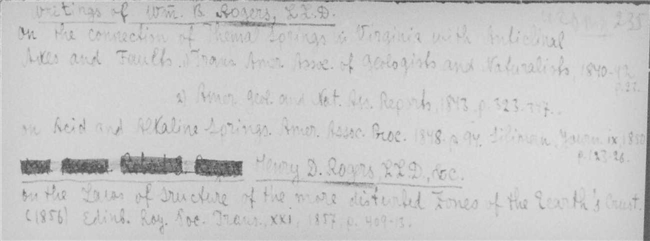 writings of Wm. B. Rogers, LL.D. 235
On the connection of Themal Springs in Virginia with Anticlinal
Axes and Faults. Trans Amer Assoc. of Geologists and Naturalists, 1840-42
2) Amer. Geol. and Nat. Ass. Reports, 1843, p. 323-347.
on Acid and Alkaline Springs. Amer. Assoc. Proc. 1848. p. 94. Silliman, Journ ix 1850
p. 123-26.
Henry D. Rogers, LL.D., &c.
on the Laws of Structure of the more disturbed Zones of the Eearth's Crust.
(1856) Edinb. Roy. Soc. Trans., xxi, 1857, p. 409-13.